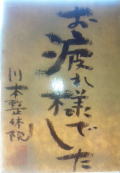 お疲れ様でした
川本整体院